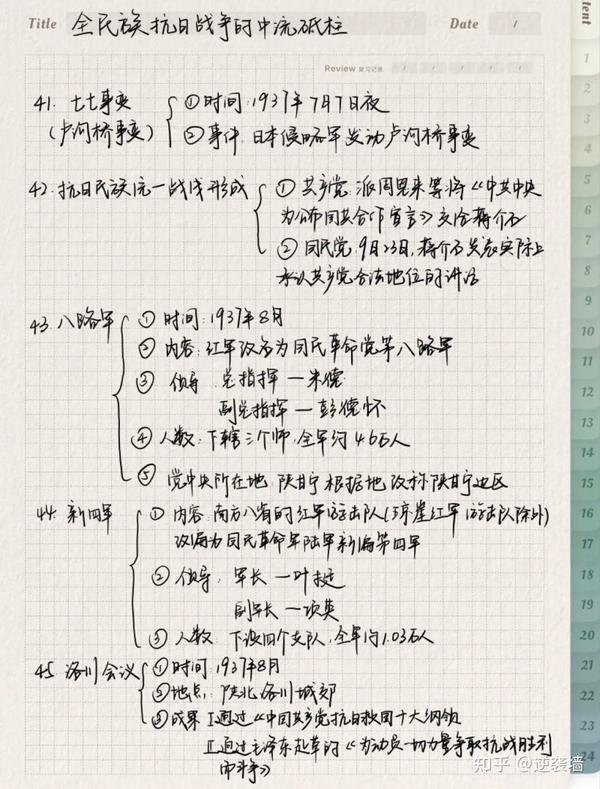 Title 全民族抗日战争的中流砥柱 Date /
tent
Review 复习记录 / / / / /
41. 七七事变 ①时间:1937年7月7日夜
(卢沟桥事变) ②事件:日本侵略军发动卢沟桥事变
42.抗日民族统一战线形成 ①共产党:派周恩来等将《中共中央
为公布国共合作宣言》交给蒋介石
②国民党:9月23日,蒋介石发表实际上
承认共产党合法地位的讲话
43.八路军 ①时间:1937年8月
②内容:红军改名为国民革命党第八路军
③领导 总指挥—朱德
副总指挥—彭德怀
④人数:下辖三个师,全军约4.6万人
⑤党中央所在地:陕甘宁根据地改称陕甘宁边区
44.新四军 ①内容:南方八省的红军游击队(琼崖红军游击队除外)
改编为国民革命军陆军新编第四军
②领导:军长—叶挺
副军长—项英
③人数:下设四个支队,全军约1.03万人
45.洛川会议 ①时间:1937年8月
②地点:陕北洛川城郊
③成果 Ⅰ通过《中国共产党抗日救国十大纲领
Ⅱ通过毛泽东起草的《为动员一切力量争取抗战胜利
而斗争》
1
2
3
4
5
6
7
8
9
10
11
12
13
14
15
16
17
18
19
20
21
22
23
24
知乎 @逆袭墙